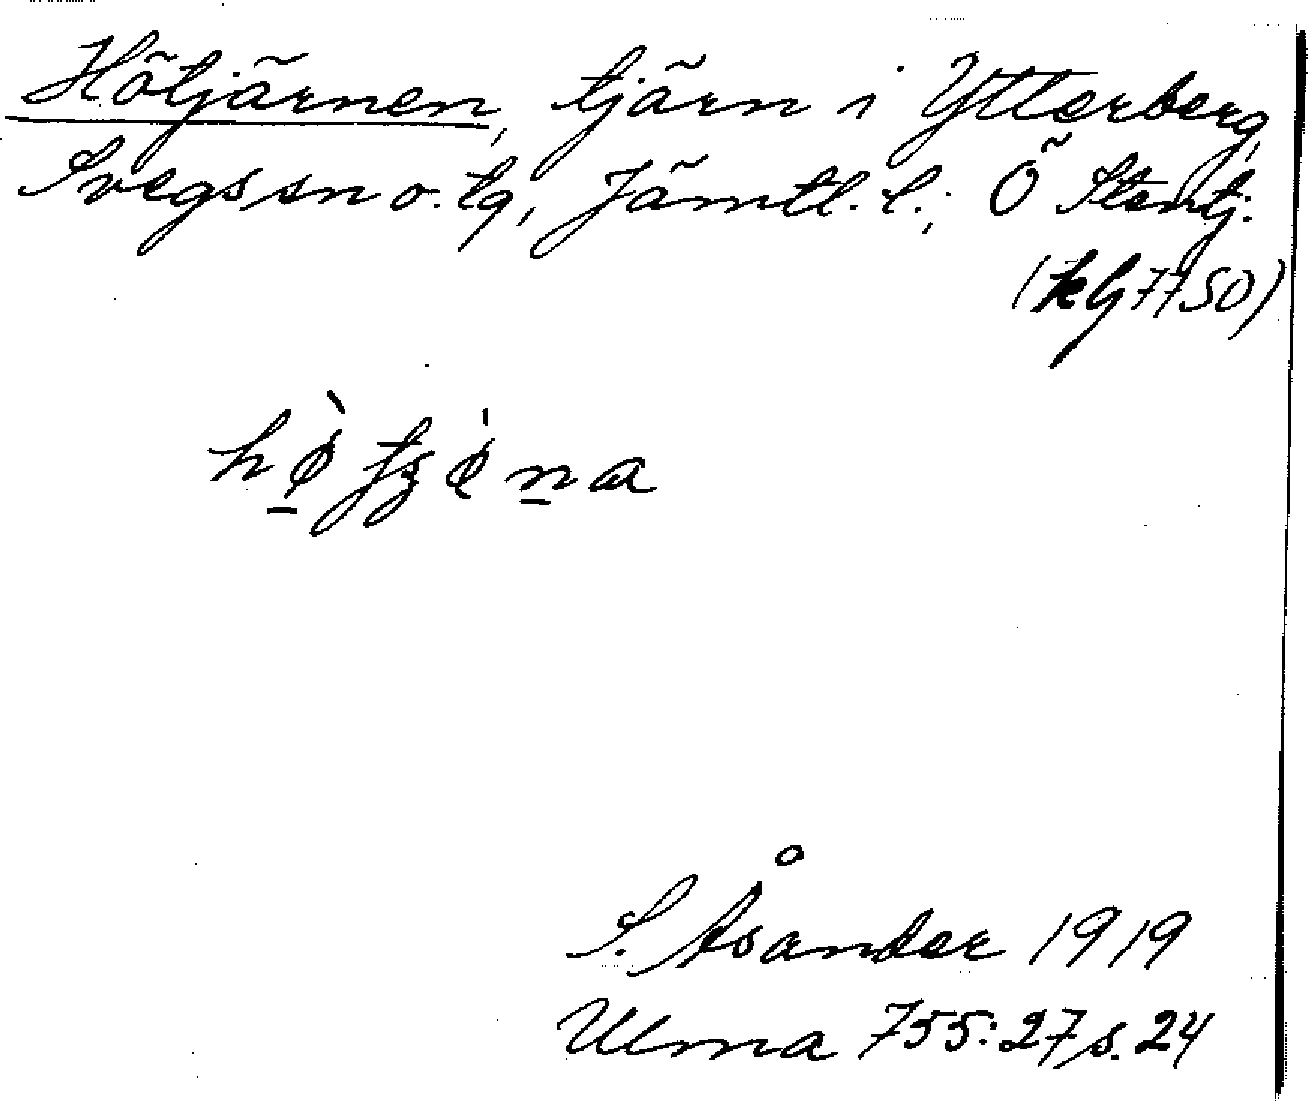 Hötjärnen, tjärn i Ytterberg,
Svegs sn o. tg, Jämtl. l.; Ö Stentj.
(kbl 7750)
S. Åsander 1919
Ulma 755:27 s. 24